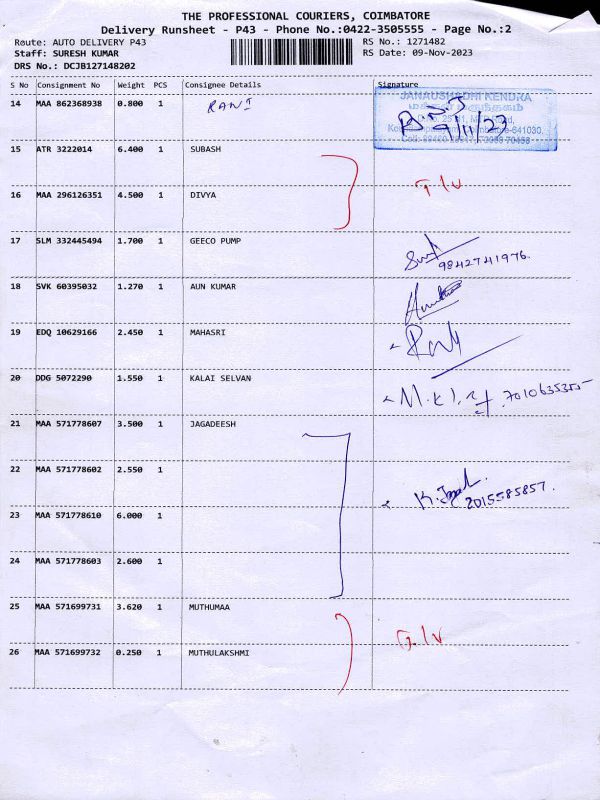 THE PROFESSIONAL COURIERS, COIMBATORE
Delivery Runsheet - P43 - Phone No.:0422-3505555 - Page No.:2
Route: AUTO DELIVERY P43 RS No.: 1271482
Staff: SURESH KUMAR RS Date: 09-Nov-2023
DRS No.: DCJB127148202
S No Consignment No Weight PCS Consignee Details Signature
14 MAA 862368938 0.800 1 RANI
JANAUSHADHI KENDRA
மக்கள் மருந்தகம்
9/11/23
641030.
15 ATR 3222014 6.400 1 SUBASH
16 MAA 296126351 4.500 1 DIVYA
17 SLM 332445494 1.700 1 GEECO PUMP
9842741976.
18 SVK 60395032 1.270 1 AUN KUMAR
19 EDQ 10629166 2.450 1 MAHASRI
20 DDG 5072290 1.550 1 KALAI SELVAN
21 MAA 571778607 3.500 1 JAGADEESH
22 MAA 571778602 2.550 1
23 MAA 571778610 6.000 1
24 MAA 571778603 2.600 1
25 MAA 571699731 3.620 1 MUTHUMAA
26 MAA 571699732 0.250 1 MUTHULAKSHMI